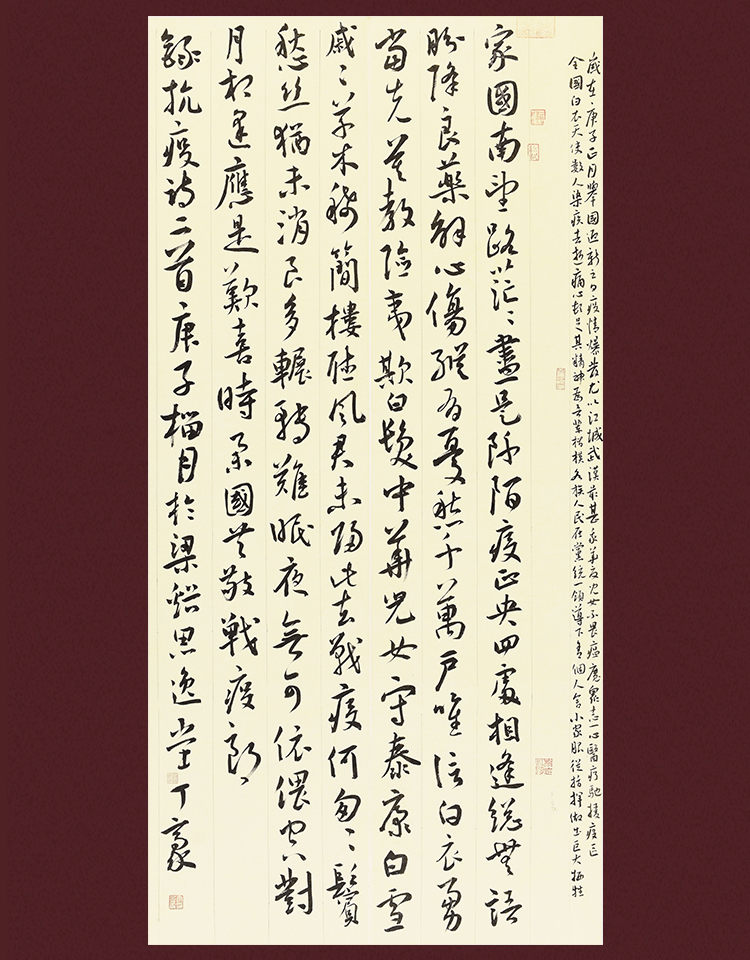 歲在庚子正月舉國迎新之日疫情爆發尤以江城武漢最甚華夏兒女不畏瘟魔眾志一心醫療馳援疫區
全國白衣天使數人染疾去逝痛心哉是其精神為之楷模各族人民在黨統一領導下個人舍小家服從指揮做出巨大犧牲
家國南望路茫茫盡是阡陌疫正央四處相逢總無語
盼降良藥解心傷縱有憂愁千萬戶唯信白衣勇
當先莫教險夷欺白髮中華兒女守泰康白雪
戚戚草木稀簡樓聽風君未歸此去戰疫何匆匆鬢
愁絲猶未消良多輾轉難眠夜無可依偎空對
月相逢應是歡喜時國共敬戰疫郎
錄抗疫詩二首庚子榴月於梁谿思逸堂丁豪